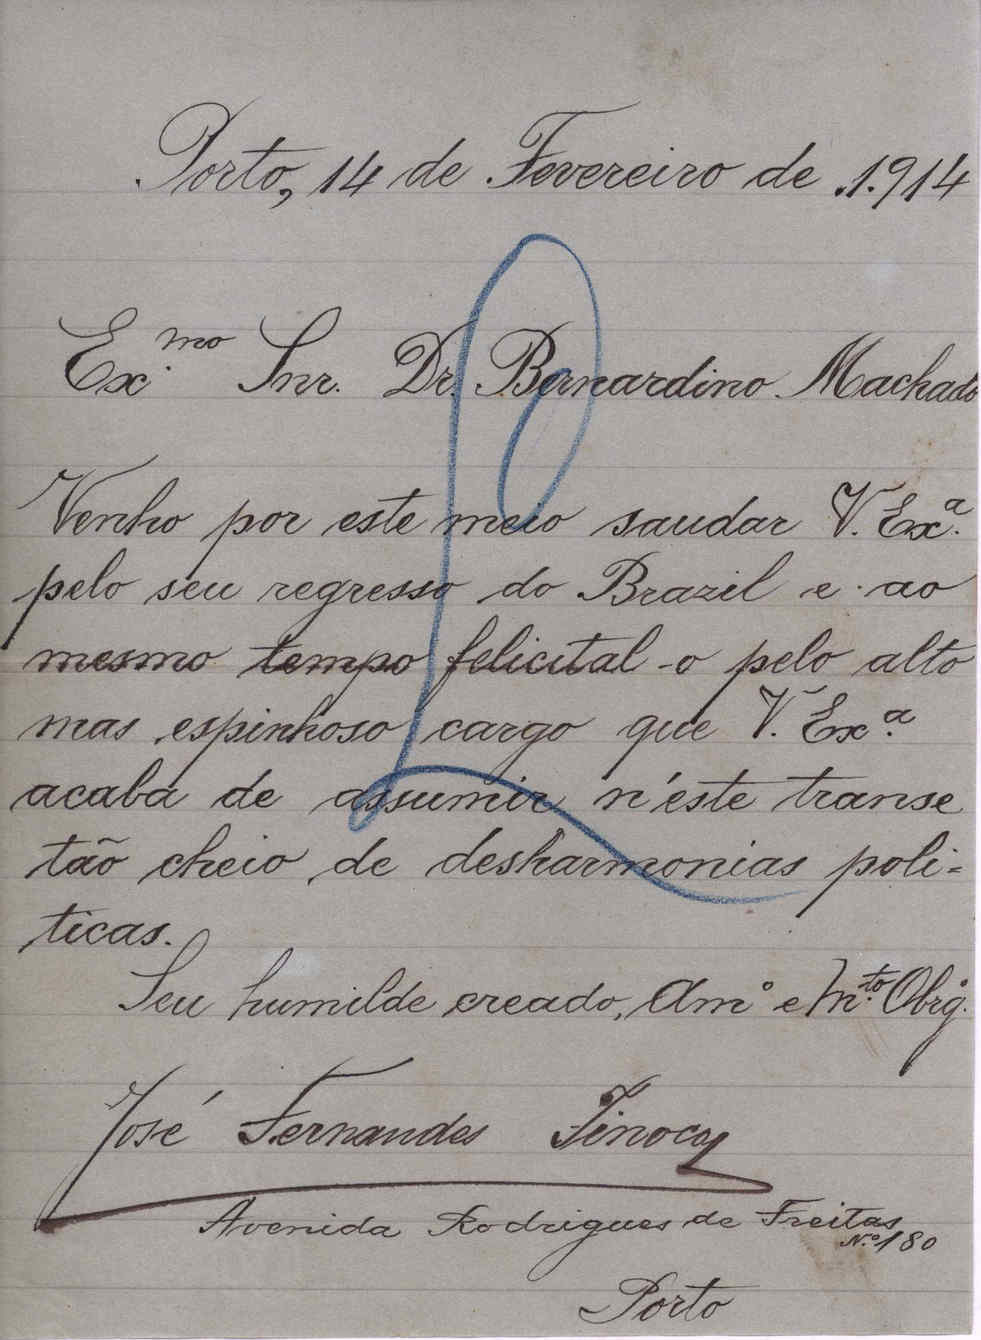 Porto, 14 de Fevereiro de 1.914
Ex.mo Snr. Dr. Bernardino Machado
Venho por este meio saudar V. Ex.ª
pelo seu regresso do Brazil e ao
mesmo tempo felicital-o pelo alto
mas espinhoso cargo que V. Ex.ª
acaba de assumir n'éste transe
tão cheio de desharmonias poli-
ticas.
Seu humilde creado, Amº e M.to Obrgº.
José Fernandes Tinoco
Avenida Rodrigues de Freitas
N.º 180
Porto